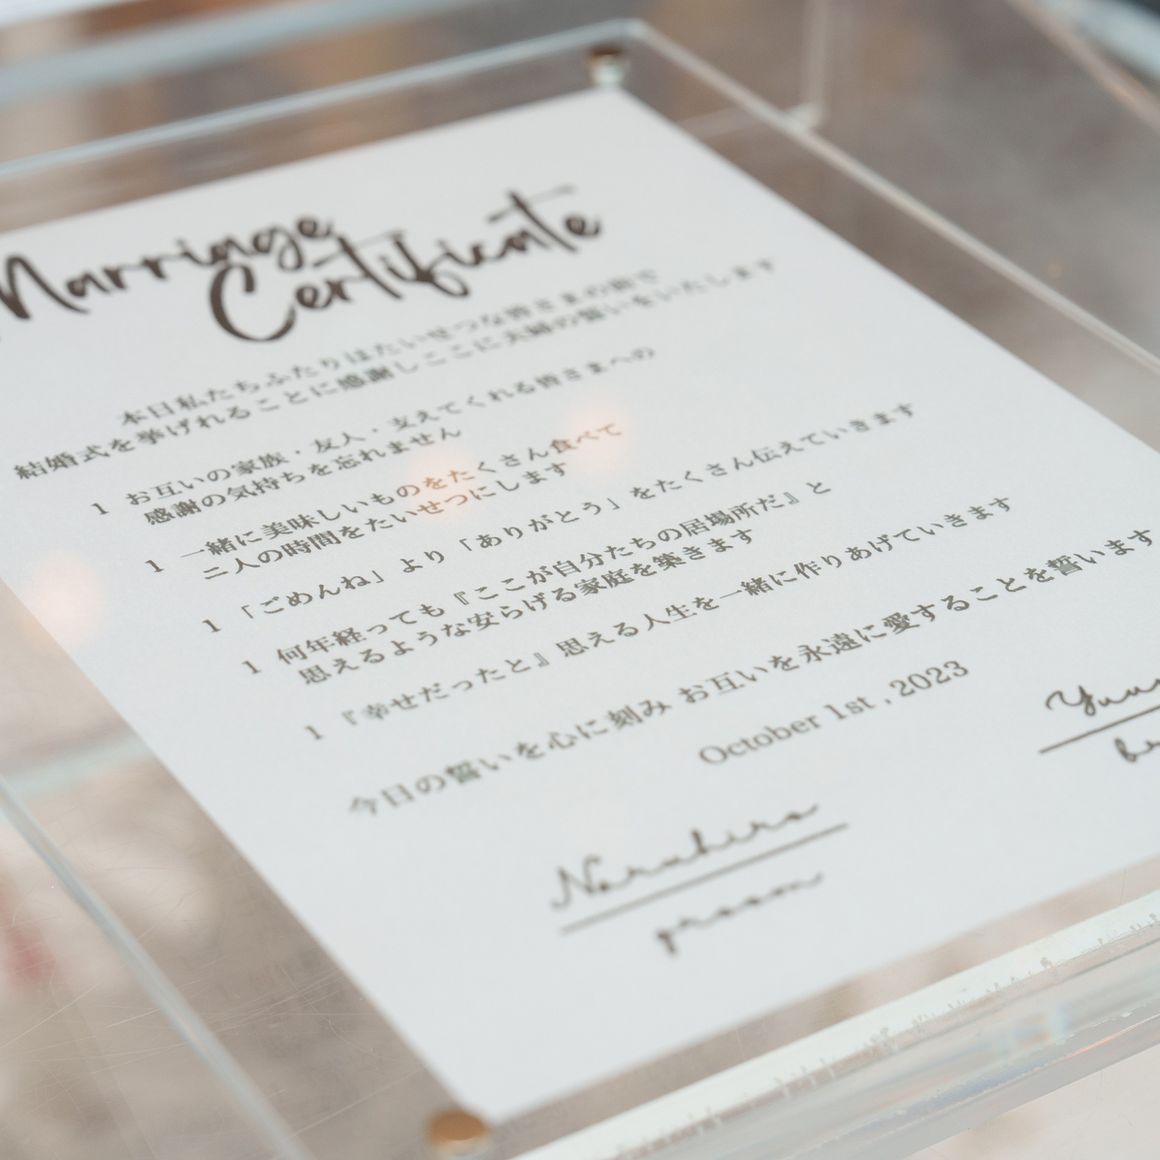 Marriage
Certificate
本日私たちふたりはたいせつな皆さまの前で
結婚式を挙げれることに感謝しここに夫婦の誓いをいたします
1 お互いの家族・友人・支えてくれる皆さまへの
感謝の気持ちを忘れません
1 一緒に美味しいものをたくさん食べて
二人の時間をたいせつにします
1 「ごめんね」より「ありがとう」をたくさん伝えていきます
1 何年経っても『ここが自分たちの居場所だ』と
思えるような安らげる家庭を築きます
1 『幸せだったと』思える人生を一緒に作りあげていきます
今日の誓いを心に刻み お互いを永遠に愛することを誓います
October 1st , 2023
Naruhiro
groom